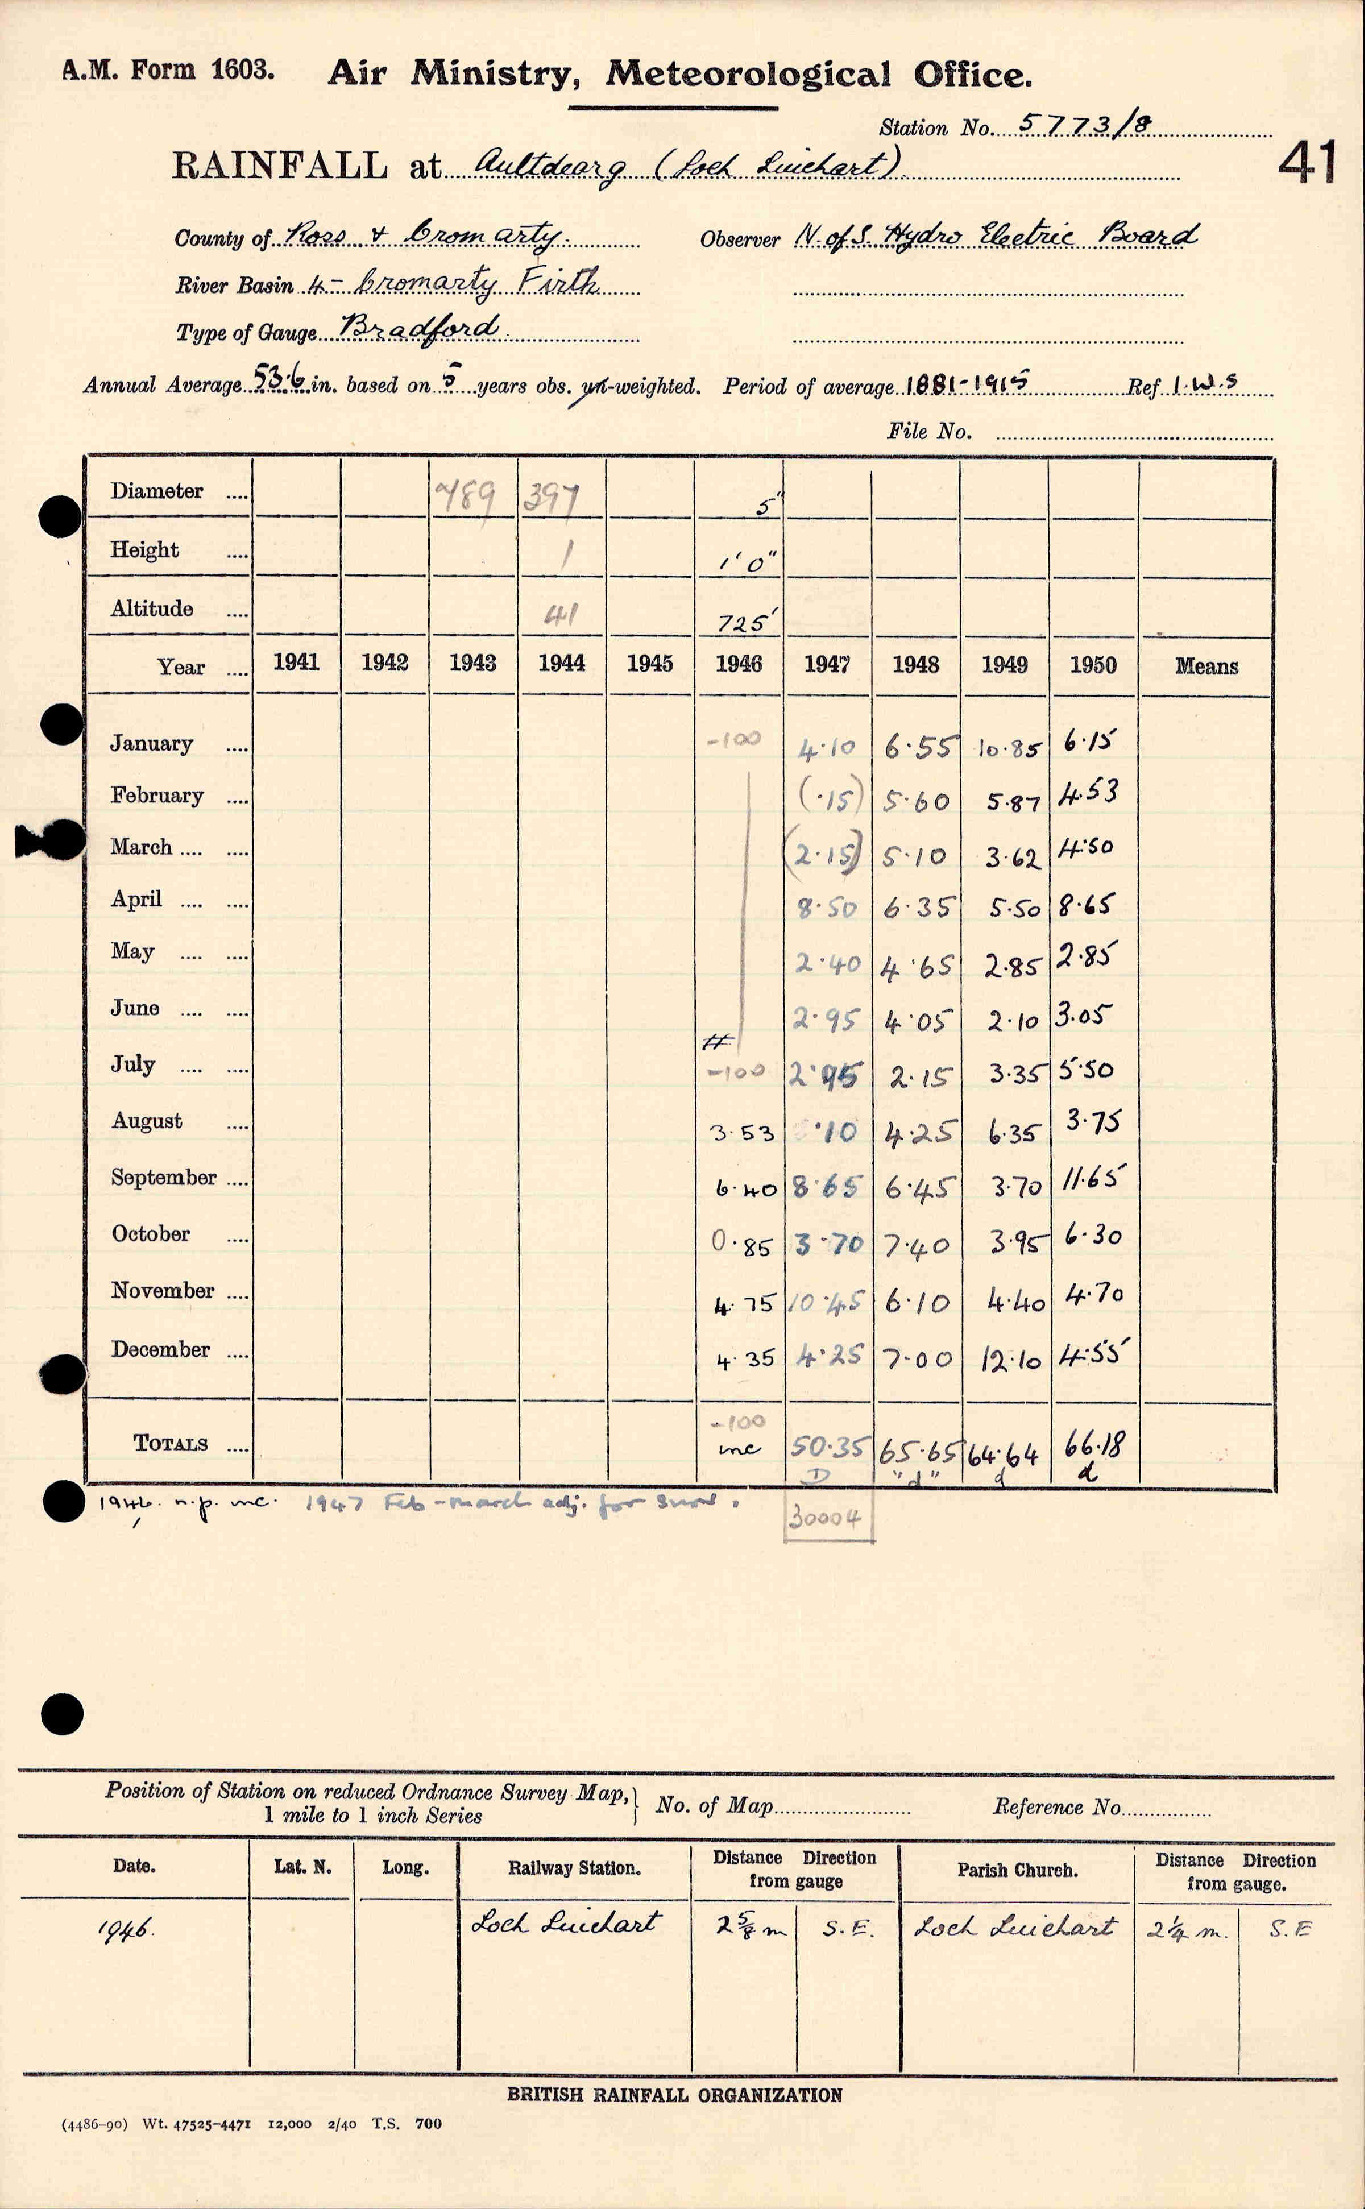 A.M. Form 1603. Air Ministry, Meteorological Office.
Station No. 5773/8
41
RAINFALL at Aultdearg (Loch Luichart)
County of Ross & Cromarty. Observer N. of S. Hydro Electric Board
River Basin 4 - Cromarty Firth
Type of Gauge Bradford
Annual Average 53.6 in. based on 5 years obs. un-weighted. Period of average 1881-1915 Ref I.W.S
File No.
Diameter .... 789 397 5"
Height .... 1 1' 0"
Altitude .... 41 725'
Year .... 1941 1942 1943 1944 1945 1946 1947 1948 1949 1950 Means
January .... -100 4.10 6.55 10.85 6.15
February .... (.15) 5.60 5.87 4.53
March .... .... (2.15) 5.10 3.62 4.50
April .... .... 8.50 6.35 5.50 8.65
May .... .... 2.40 4.65 2.85 2.85
June .... .... 2.95 4.05 2.10 3.05
July .... .... -100 2.95 2.15 3.35 5.50
August .... 3.53 .10 4.25 6.35 3.75
September .... 6.40 8.65 6.45 3.70 11.65
October .... 0.85 3.70 7.40 3.95 6.30
November .... 4.75 10.45 6.10 4.40 4.70
December .... 4.35 4.25 7.00 12.10 4.55
-100
TOTALS .... inc 50.35 65.65 64.64 66.18
D "d" d d
1946. n.p. inc. 1947 Feb - March adj. for snow.
30004
Position of Station on reduced Ordnance Survey Map,} No. of Map Reference No.
1 mile to 1 inch Series
Date. Lat. N. Long. Railway Station. Distance Direction from gauge Parish Church. Distance Direction from gauge.
1946. Loch Luichart 2 5/8 m S.E. Loch Luichart 2 1/4 m. S.E
BRITISH RAINFALL ORGANIZATION
(4486-90) Wt. 47525-4471 12,000 2/40 T.S. 700